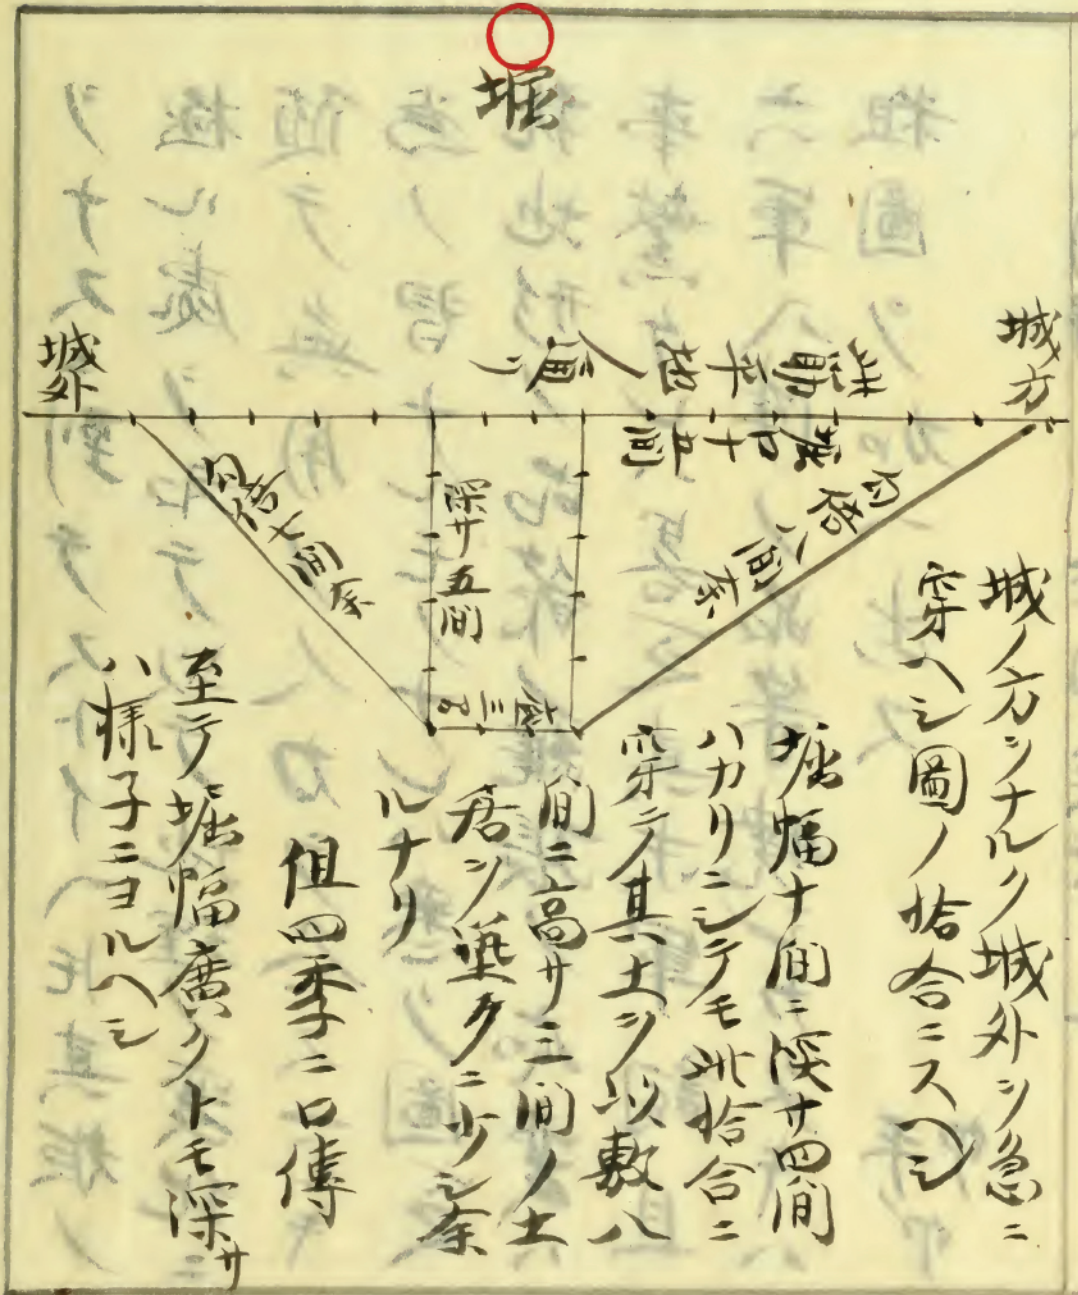 堀
城方
城外
堀口十五間
勾倍八間余
勾倍七間余
深サ五間
底三間
城ノ方ヲナルク城外ヲ急ニ
穿ヘシ圖ノ恰合ニスヘシ
堀幅十間ニ深サ四間
ハカリニシテモ此恰合ニ
穿テ其土ヲ以敷八
間ニ高サ三間ノ土
居ヲ築クニ少シ余
ルナリ
但四季ニ口傳
至テ堀幅廣クトモ深サ
ハ様子ニヨルヘシ